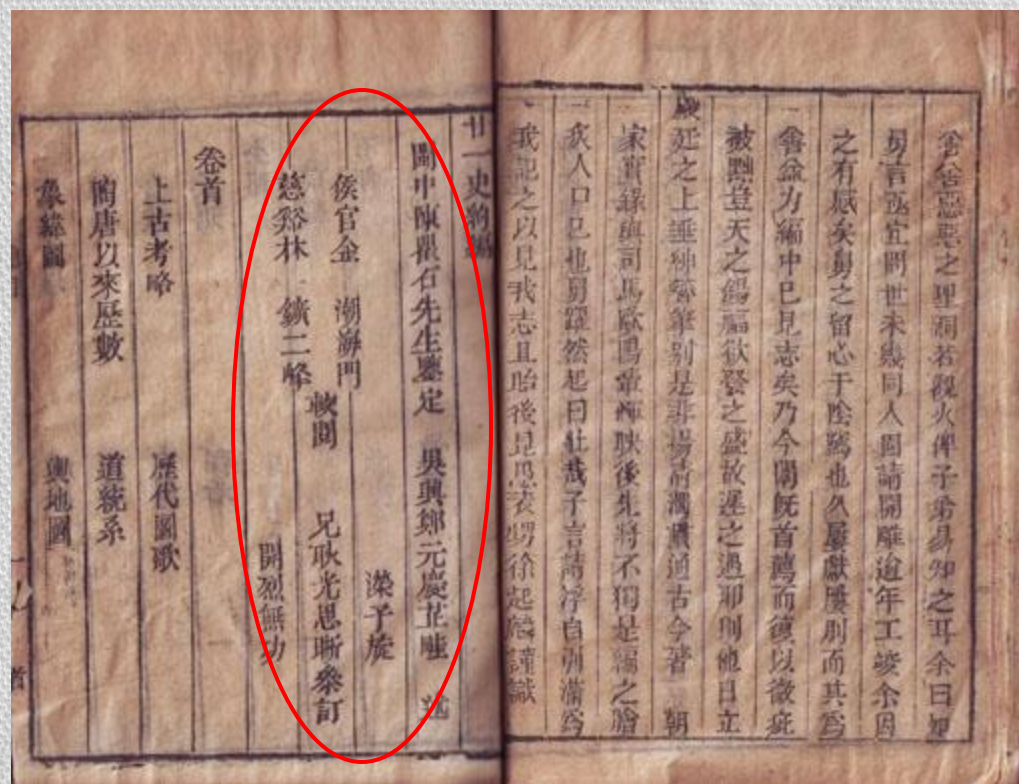 惡惡之理洞若觀火俾子弟易知之耳余曰
舅言亟宜問世未幾同人固請開雕逾年工竣余因
之有感矣舅之留心于陰騭也久屢獻屢刖而其爲
善益力編中已見志矣乃今闈既首薦而復以微疵
被黜登天之錫福欲發之盛故遲之過耶則他日立
殿廷之上垂紳簪筆别是非揚清濁貫通古今著 朝
家實錄與司馬歐陽輩輝映後先將不獨是編之膾
炙人口已也舅躍然起曰壯哉子言請浮白引滿爲
我記之以見我志且貽後昆愚表甥徐起麟謹識
廿一史約編
閩中陳石先生鑒定 吳興鄭元慶芷畦 述
侯官金 潮海門
慈谿林 鑛二峰
較閱
濚予旋
兄耿光思晰參訂
開烈無功
卷首
上古考略 歷代圖歌
陶唐以來歷數 道統系
象緯圖 輿地圖